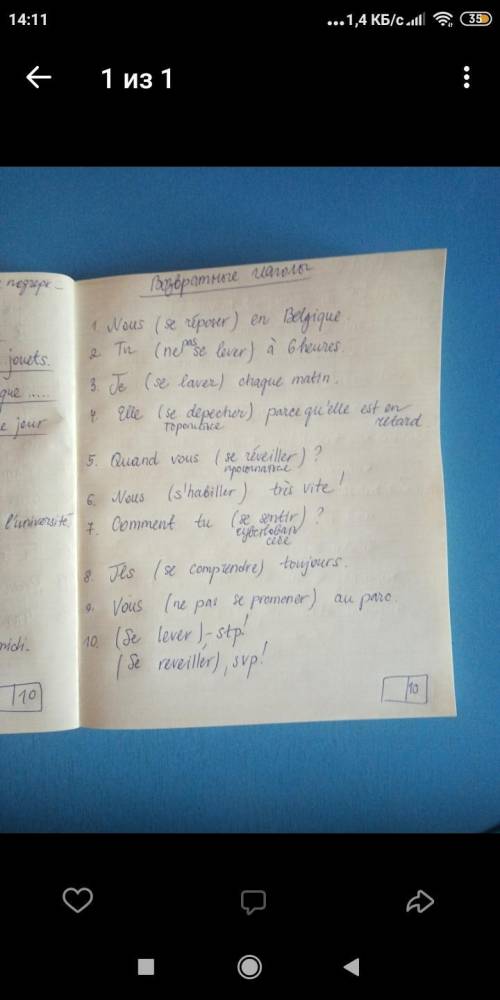 14:11
...1,4 КБ/с
35
1 из 1
jouets.
que .....
e jour
l'université.
midi.
10
Возвратные глаголы
1. Nous (se réposer) en Belgique.
2. Tu (ne pas se lever) à 6 heures.
3. Je (se laver) chaque matin.
4. Elle (se depecher) parce qu'elle est en retard
торопиться
5. Quand vous (se réveiller) ?
просыпаться
6. Nous (s'habiller) très vite!
7. Comment tu (se sentir) ?
себя
8. Ils (se comprendre) toujours.
9. Vous (ne pas se promener) au parc.
10. (Se lever) - stp!
(Se reveiller), svp!
10